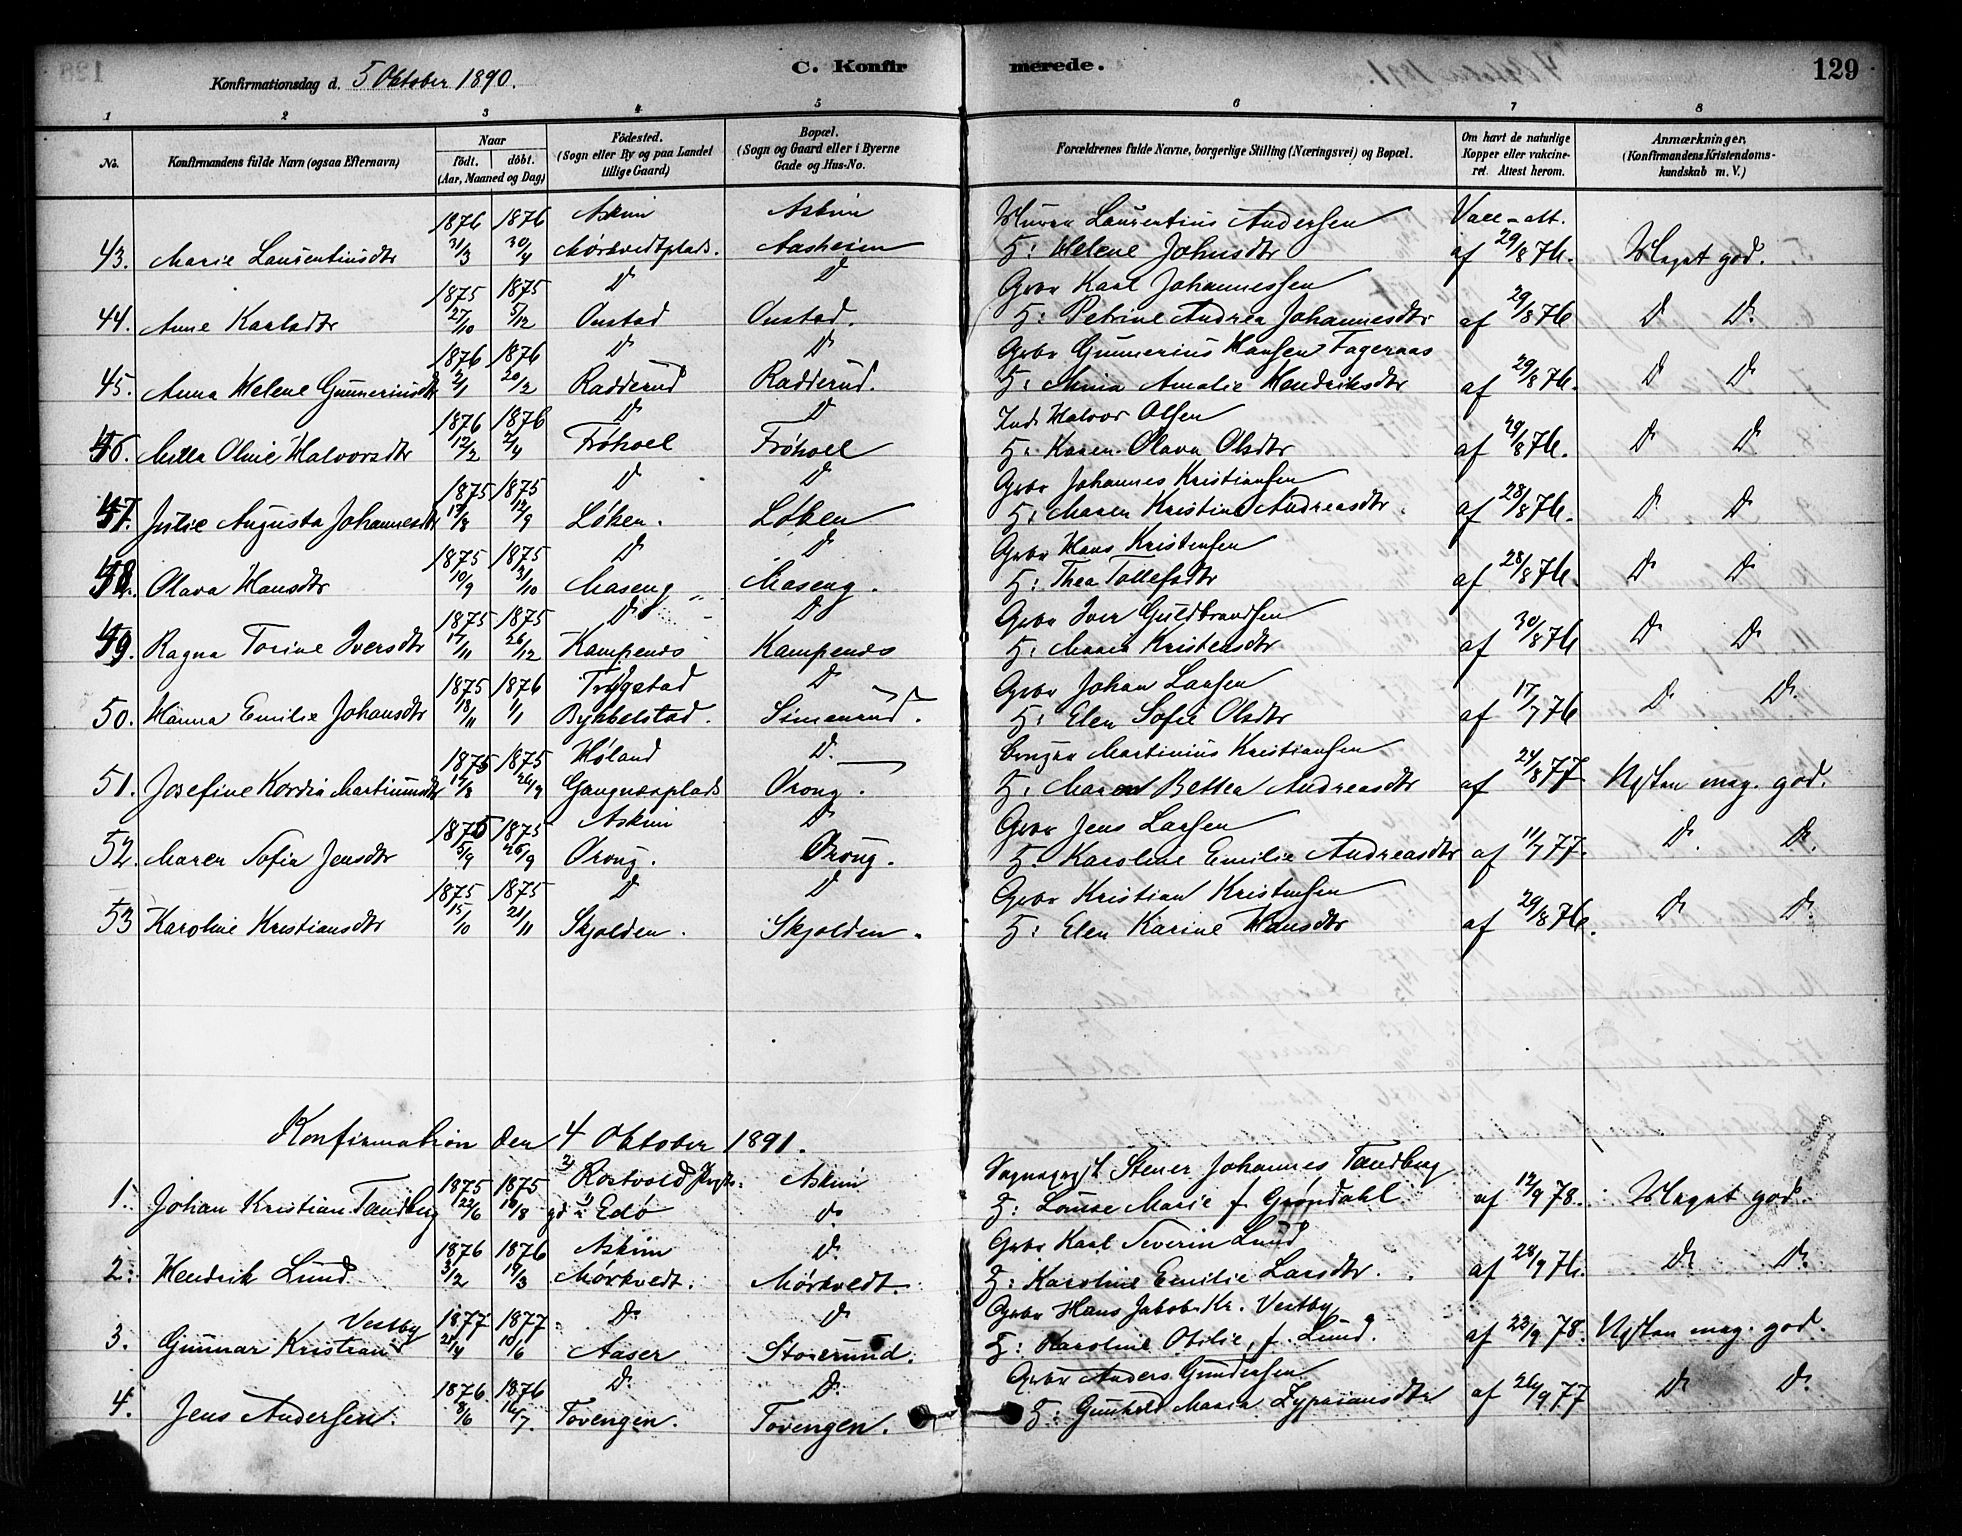 129
Konfirmationsdag d. 5 Oktober 1890.
C. Konfir merede.
1 2 3 4 5 6 7 8
No.
Konfirmandens fulde Navn (ogsaa Efternavn)
Naar
födt. döbt.
(Aar, Maaned og Dag)
Födested.
(Sogn eller By og paa Landet
tillige Gaard)
Bopæl.
(Sogn og Gaard eller i Byerne
Gade og Hus-No.
Forældrenes fulde Navne, borgerlige Stilling (Næringsvei) og Bopæl.
Om havt de naturlige
Kopper eller vakcine-
ret. Attest herom.
Anmærkninger,
(Konfirmandens Kristendoms-
kundskab m. V.)
1876 1876 Askim Askim Murer Laurentius Andersen Vacc-att.
43. Marie Laurentiusdtr 31/3 30/4 Mørkvedtplads. Aasheim H: Helene Johnsdtr af 29/8 76. Meget god.
1875 1875 D D Gbr Karl Johannessen
44. Anne Karlsdtr 27/10 5/12 Onstad Onstad. H: Petrine Andrea Johannesdtr af 29/8 76 D D
1876 1876 D D Gbr Gunnerius Hansen Fageraas
45. Anna Helene Gunneriusdtr 2/1 20/2 Radderud Radderud. H: Mina Amalie Hendriksdtr af 29/8 76. D D
1876 1876 D D Ind Halvor Olsen
46. Milla Oline Halvorsdtr 12/2 2/4 Frøhoel Frøhoel H: Karen Olava Olsdtr af 29/8 76. D D
1875 1875 D D Gbr Johannes Kristiansen
47. Julie Augusta Johannesdtr 17/8 12/9 Løken. Løken H: Maren Kristine Andreasdtr. af 28/8 76. D D
1875 1875 D D Gbr Hans Kristensen
48. Olava Hansdtr 10/9 31/10 Maseng Maseng. H: Thea Tollefsdtr af 28/8 76. D D
1875 1875 D D Gbr Iver Guldbrandsen
49. Ragna Torine Iversdtr 17/11 26/12 Kampenes Kampenes H: Marie Kristensdtr af 30/8 76 D D
1875 1876 Trygstad D Gbr Johan Larsen
50. Hanna Emilie Johansdtr 18/11 1/1 Bykkelstad. Simenrud. H: Elen Sofie Olsdtr af 17/7 76 D D
1875 1875 Høland D. Martinius Kristiansen
51. Josefine Kordia Martiniusdtr 17/8 26/9 Gangnæsplads Orong. H: Maren Bettea Andreasdtr af 24/8 77 Næsten meg. god.
1875 1875 Askim D Gbr Jens Larsen
52. Maren Sofie Jensdtr 5/9 26/9 Orong. Orong. H. Karoline Emilie Andreasdtr af 11/7 77. D. D.
1875 1875 D D Gbr Kristian Kristensen
53 Karoline Kristiansdtr 15/10 21/11 Skjolden. Skjolden. H: Elen Karine Hansdtr af 29/8 76. D D
Konfirmation den 4 Oktober 1891.
1875 1875 Askim Sognepræst Stener Johannes Tandberg
1. Johan Kristian Tandberg 22/6 18/8 Edø D H: Louise Marie f. Grøndahl af 12/9 78. Meget god.
1876 1876 Askim D Gbr Karl Severin Lund
2. Hendrik Lund 3/2 19/3 Mørkvedt. Mørkvedt. H: Karoline Emilie Larsdtr. af 28/9 76. D D
Vestby 1877 1877 D D Gbr Hans Jakob Kr. Vestby
3. Gunnar Kristian 21/4 10/6 Aaser Storerud. H: Karoline Otilie, f. Lund. af 22/9 78. Næsten meg. god.
1876 1876 D D Gbr Anders Gundersen
4. Jens Andersen. 8/6 16/7. Tovengen. Tovengen. H: Gunhild Maria Zypriansdtr af 26/9 77 D D